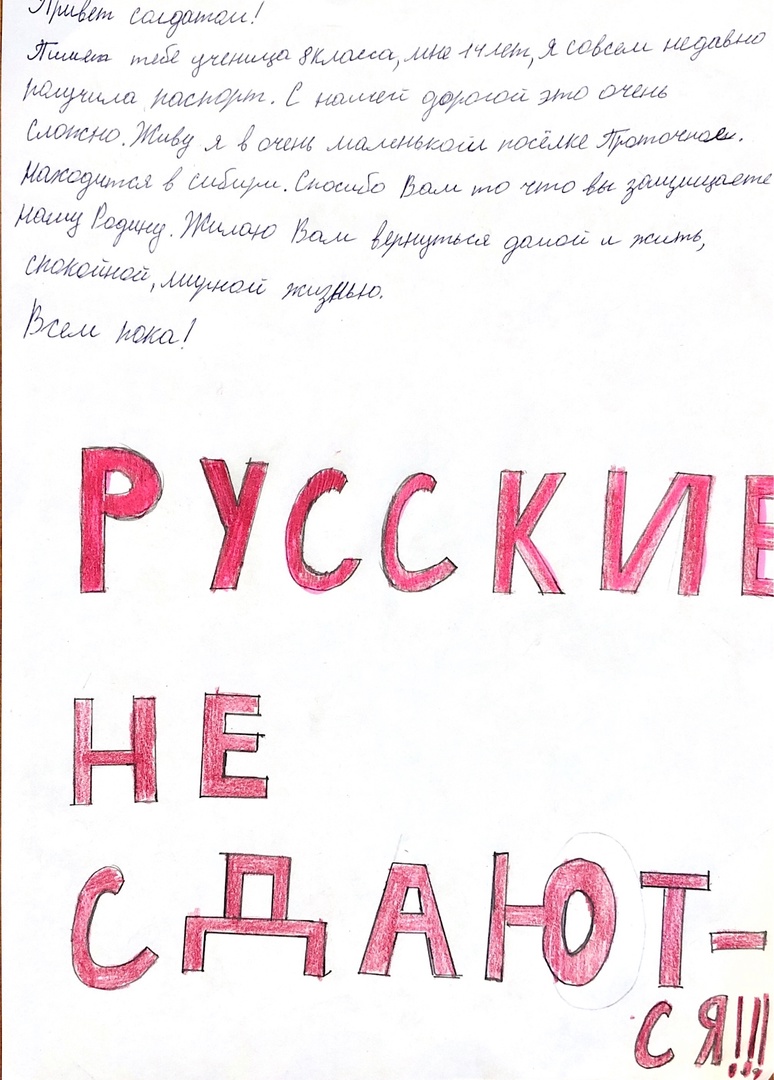 Привет солдатам!
Пишет тебе ученица 8 класса, мне 14 лет, я совсем недавно
получила паспорт. С нашей дорогой это очень
сложно. Живу я в очень маленьком посёлке Проточное.
Находится в сибири. Спосибо Вам то что вы защищаете
нашу Родину. Жилаю Вам вернуться домой и жить,
спокойной, мирной жизнью.
Всем пока!
РУССКИЕ
НЕ
СДАЮТ-
СЯ!!!